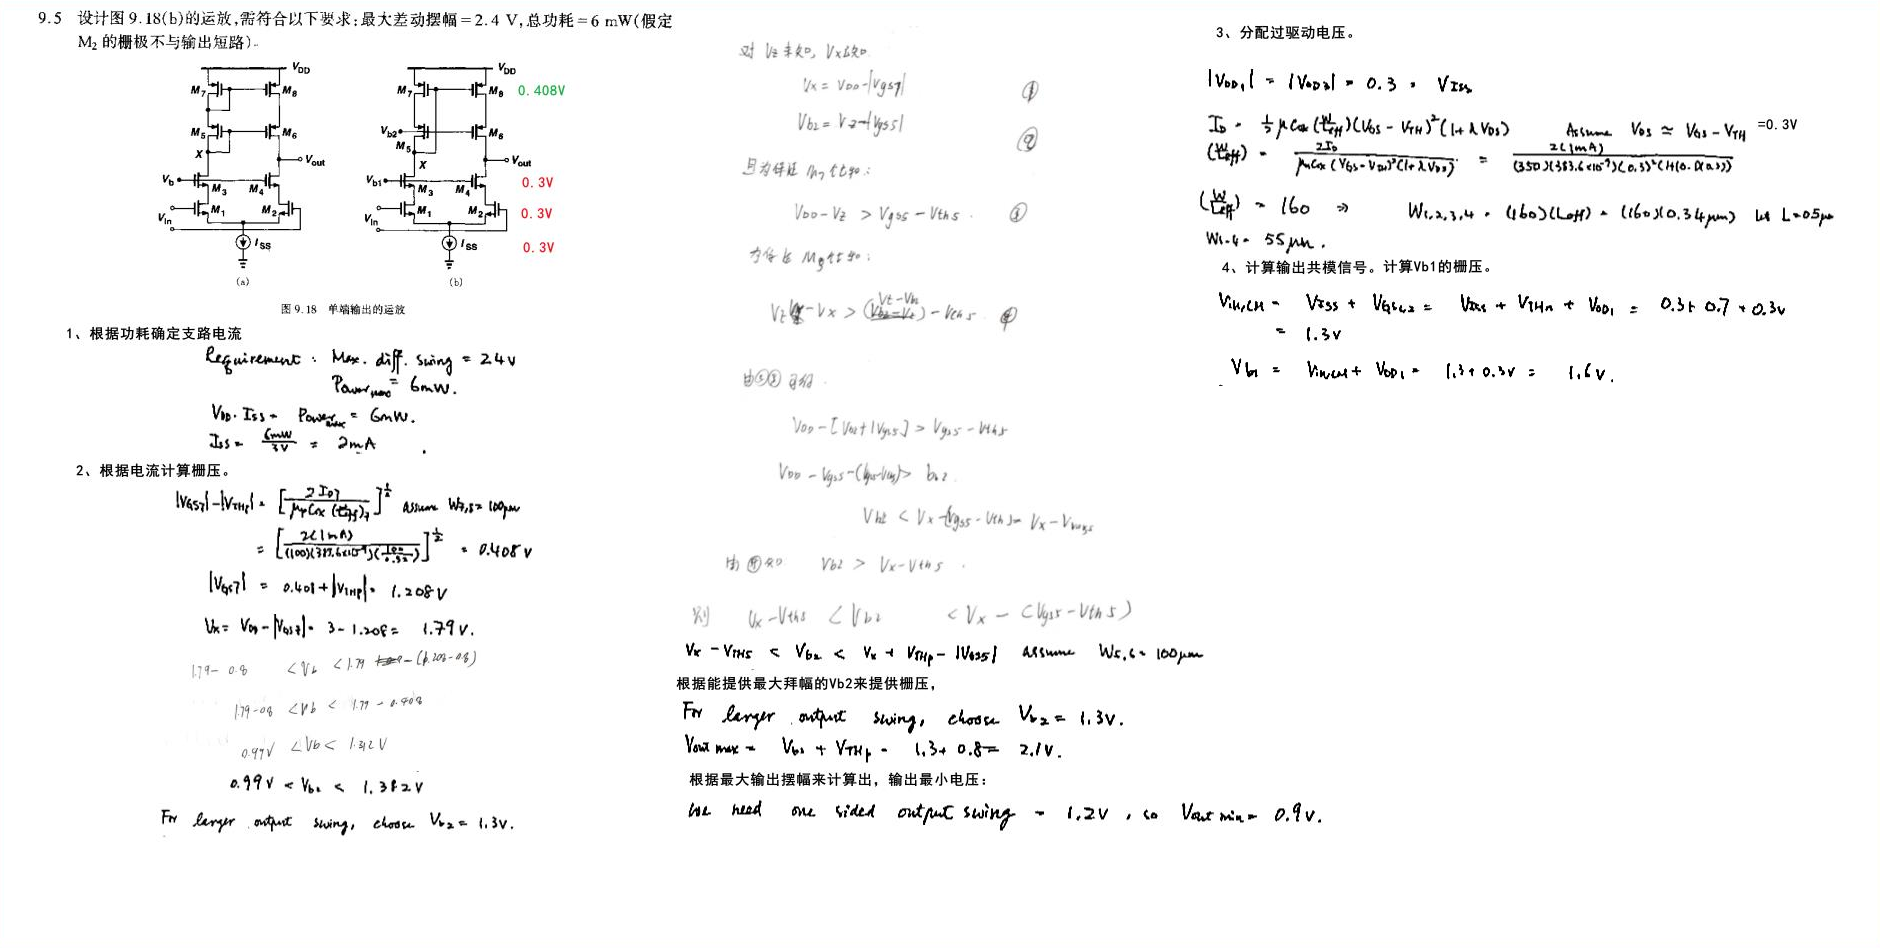 9.5 设计图 9.18(b)的运放,需符合以下要求:最大差动摆幅=2.4 V,总功耗=6 mW(假定
M₂ 的栅极不与输出短路)。
V_DD
M₇
M₈
M₅
M₆
X
V_out
V_b
M₃
M₄
M₁
M₂
V_in
I_SS
(a)
V_DD
M₇
M₈ 0.408V
V_b2
M₅
M₆
X
V_out
V_b1
M₃
M₄
0.3V
M₁
M₂
0.3V
V_in
I_SS
0.3V
(b)
图 9.18 单端输出的运放
1、根据功耗确定支路电流
Requirement : Max. diff. swing = 2.4V
Power_max = 6mW.
V_DD · I_SS = Power_max = 6mW.
I_SS = 6mW/3V = 2mA
2、根据电流计算栅压。
|V_GS7| - |V_THp| = [2I_D7 / μpCox(W/Leff)₇]^½ assume W₇,₈ = 100μm
= [2(1mA) / (100)(383.6×10⁻⁹)(100/0.32)]^½ = 0.408V
|V_GS7| = 0.408 + |V_THp| = 1.208V
Vx = V_DD - |V_GS7| = 3 - 1.208 = 1.79V.
1.79 - 0.8 < Vb < 1.79 - (1.208-0.8)
1.79-0.8 < Vb < 1.79 - 0.408
0.99V < Vb < 1.382V
0.99V < V_b2 < 1.382V
For larger output swing, choose V_b2 = 1.3V.
对 Vz 未知, Vx 已知
Vx = V_DD - |Vgs7| ①
Vb2 = Vz - |Vgs5| ②
且为保证 M₇ 饱和:
V_DD - Vz > Vgs5 - Vth5 . ③
为保证 M₈ 饱和:
Vz - Vx > (Vz - Vb2) - Vth5 ④
由①②可得
V_DD - [Vb2 + |Vgs5|] > Vgs5 - Vth5
V_DD - Vgs5 - (Vgs5-Vth5) > b2
Vb2 < Vx - (Vgs5 - Vth5) =
由④知 Vb2 > Vx - Vth5 .
则 Vx - Vth5 < Vb2 < Vx - (Vgs5 - Vth5)
Vx - V_TH5 < V_b2 < Vx + V_THp - |V_GS5| assume W₅,₆ = 100μm
根据能提供最大拜幅的Vb2来提供栅压,
For larger output swing, choose V_b2 = 1.3V.
Vout max = V_b2 + V_THp = 1.3 + 0.8 = 2.1V.
根据最大输出摆幅来计算出, 输出最小电压:
We need one sided output swing = 1.2V , so Vout min = 0.9V.
3、分配过驱动电压。
|V_OD1| = |V_OD3| = 0.3 = V_ISS
I_D = ½ μCox(W/Leff)(V_GS - V_TH)²(1+λV_DS) Assume V_DS ≃ V_GS - V_TH =0.3V
(W/Leff) = 2I_D / μnCox(V_GS-V_TH)²(1+λV_DS) = 2(1mA) / (350)(383.6×10⁻⁹)(0.3)²(1+(0.1)(0.3))
(W/Leff) = 160 ⇒ W₁,₂,₃,₄ = (160)(Leff) = (160)(0.34μm) let L=0.5μm
W₁-₄ = 55μm .
4、计算输出共模信号。计算Vb1的栅压。
Vin,CM = V_ISS + V_GS1,2 = V_ISS + V_THn + V_OD1 = 0.3 + 0.7 + 0.3V
= 1.3V
V_b1 = Vin,CM + V_OD1 = 1.3 + 0.3V = 1.6V.